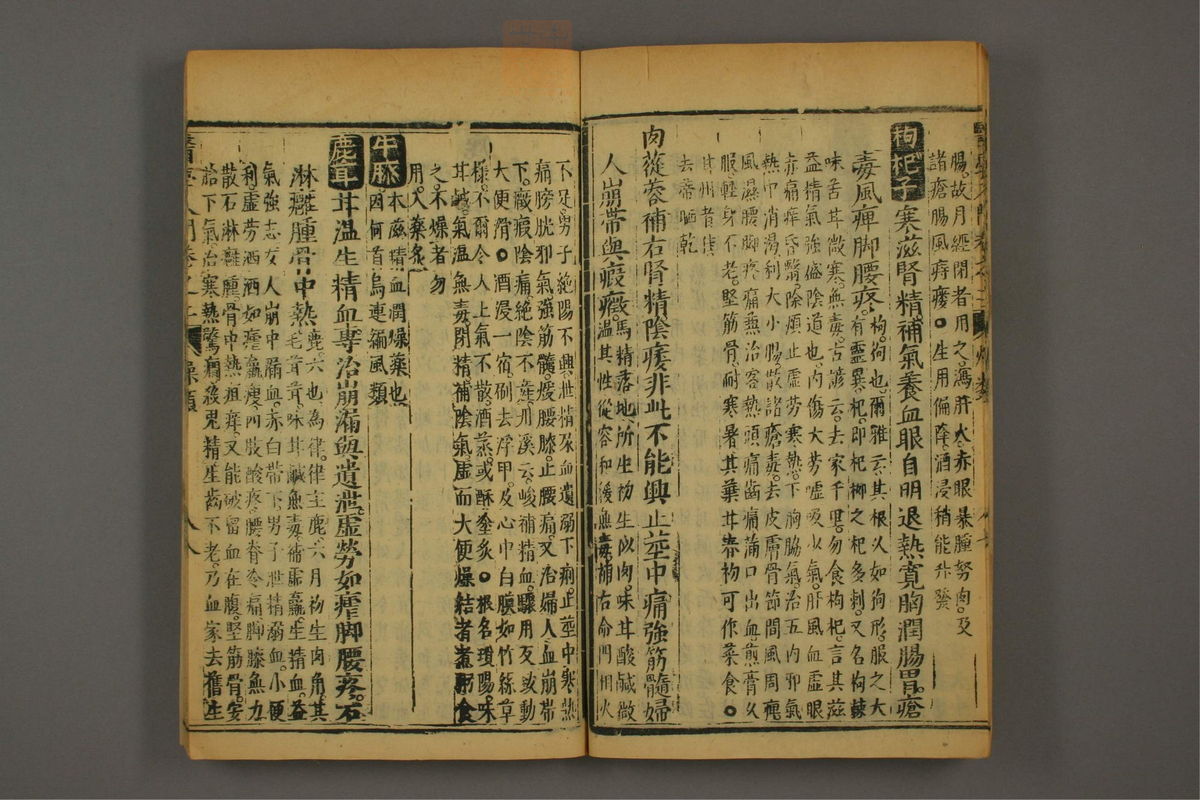 腸故月經閉者用之瀉肝火赤眼暴腫努肉及
諸瘡腸風痔瘻○生用偏降酒浸稍能升發
枸杞子寒滋腎精補氣養血眼自明退熱寬胸潤腸胃瘡
毒風痺脚腰疼
枸狗也爾雅云其根久如狗形服之大
有靈異杞即杞柳之杞多刺又名枸棘
味苦甘微寒無毒古諺云去家千里勿食枸杞言其滋
益精氣強盛陰道也內傷大勞噓吸少氣肝風血虛眼
赤痛痒昏翳除煩止虛勞寒熱下胸脇氣治五內邪氣
熱中消渴利大小腸散諸瘡毒去皮膚骨節間風周痺
風濕腰脚疼痛兼治客熱頭痛齒痛滿口出血煎膏久
服輕身不老堅筋骨耐寒暑其葉甘春初可作菜食○
甘州者佳
去蒂晒乾
肉蓯蓉補右腎精陰痿非此不能興止莖中痛強筋髓婦
人崩帶與瘕癥
馬精落地所生初生似肉味甘酸鹹微
溫其性從容和緩無毒補右命門相火
不足男子絕陽不興泄精尿血遺溺下痢止莖中寒熱
痛膀胱邪氣強筋髓煖腰膝止腰痛又治婦人血崩帶
下癥瘕陰痛絕陰不產川溪云峻補精血驟用反致動
大便滑○酒浸一宿刷去浮甲及心中白膜如竹絲草
樣不爾令人上氣不散酒蒸或酥塗炙○根名瑣陽味
甘鹹氣溫無毒閉精補陰氣虛而大便燥結者煮粥食
之不燥者勿
用入藥炙
牛膝本滋精血潤燥藥也
因何首烏連編風類
鹿茸甘溫生精血專治崩漏與遺泄虛勞如瘧脚腰疼石
淋癰腫骨中熱
鹿六也為律律主鹿六月初生肉角其
毛茸茸味甘鹹無毒補虛羸生精血益
氣強志女人崩中漏血赤白帶下男子泄精溺血小便
利虛勞洒洒如瘧羸瘦四肢酸疼腰脊冷痛脚膝無力
散石淋癰腫骨中熱疽痒又能破留血在腹堅筋骨安
胎下氣治寒熱驚癇殺鬼精生齒不老乃血家去舊生
醫學入門卷之二
燥類